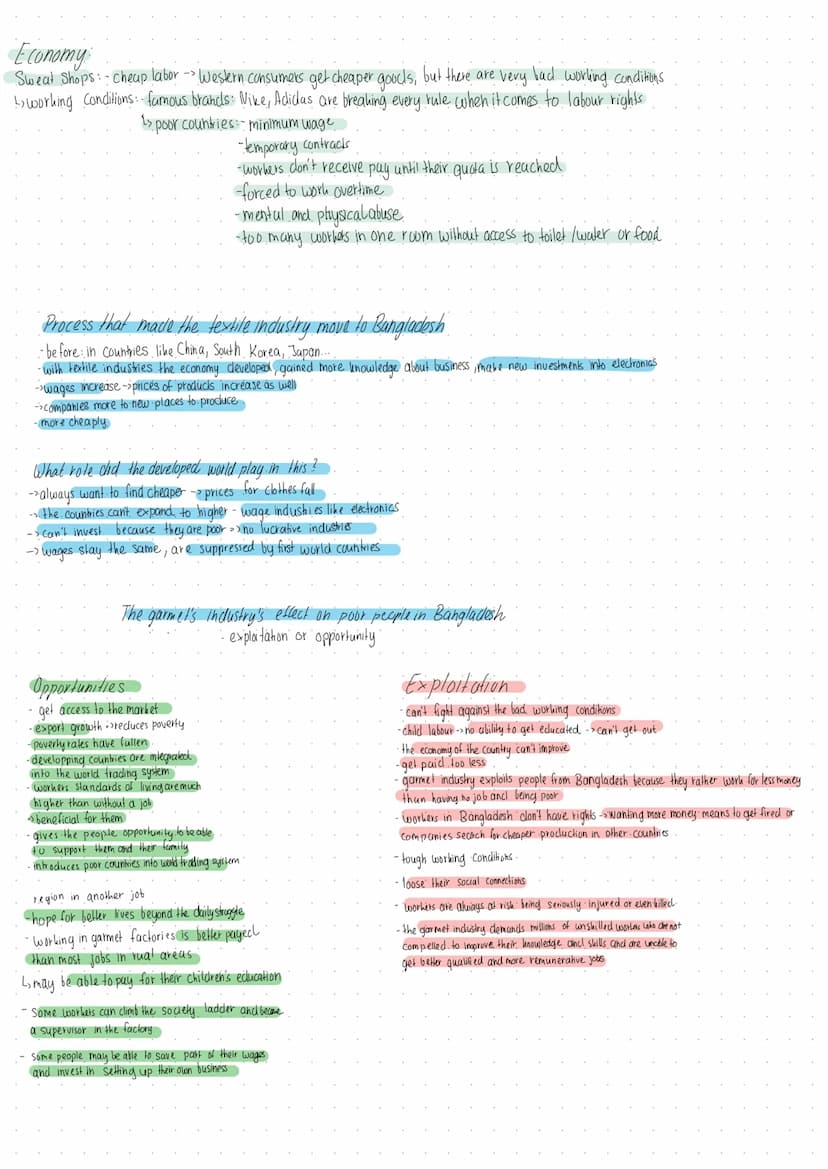 Economy:
Sweat Shops: - cheap labor -> Western consumers get cheaper goods, but there are very bad working conditions
↳ working conditions: - famous brands: Nike, Adidas are breaking every rule when it comes to labour rights
↳ poor countries: - minimum wage
- temporary contracts
- workers don't receive pay until their quota is reached
- forced to work overtime
- mental and physical abuse
- too many workers in one room without access to toilet / water or food
Process that made the textile industry move to Bangladesh
- before: in countries like China, South Korea, Japan...
- with textile industries the economy developed, gained more knowledge about business, make new investments into electronics
-> wages increase -> prices of products increase as well
-> companies more to new places to produce
- more cheaply
What role did the developed world play in this?
-> always want to find cheaper -> prices for clothes fall
-> the countries can't expand to higher - wage industries like electronics
-> can't invest because they are poor -> no lucrative industries
-> wages stay the same, are suppressed by first world countries
The garmet's industry's effect on poor people in Bangladesh
- exploitation or opportunity
Opportunities
- get access to the market
- export growth -> reduces poverty
- poverty rates have fallen
- developping countries are integrated
into the world trading system
- workers standards of living are much
higher than without a job
-> beneficial for them
- gives the people opportunity to be able
to support them and their family
- introduces poor countries into world trading system
region in another job
- hope for better lives beyond the daily struggle
- working in garmet factories is better payed
than most jobs in rual areas
↳ may be able to pay for their children's education
- Some workers can climb the society ladder and become
a supervisor in the factory
- Some people may be able to save part of their wages
and invest in setting up their own business
Exploitation
- can't fight against the bad working conditions
- child labour -> no ability to get educated -> can't get out
- the economy of the country can't improve
- get paid too less
- garmet industry exploits people from Bangladesh because they rather work for less money
than having no job and being poor
- workers in Bangladesh don't have rights -> wanting more money means to get fired or
companies search for cheaper production in other countries
- tough working conditions
- loose their social connections
- workers are always at risk being seriously injured or even killed
- the garmet industry demands millions of unskilled workers who are not
compelled to improve their knowledge and skills and are unable to
get better qualified and more remunerative jobs